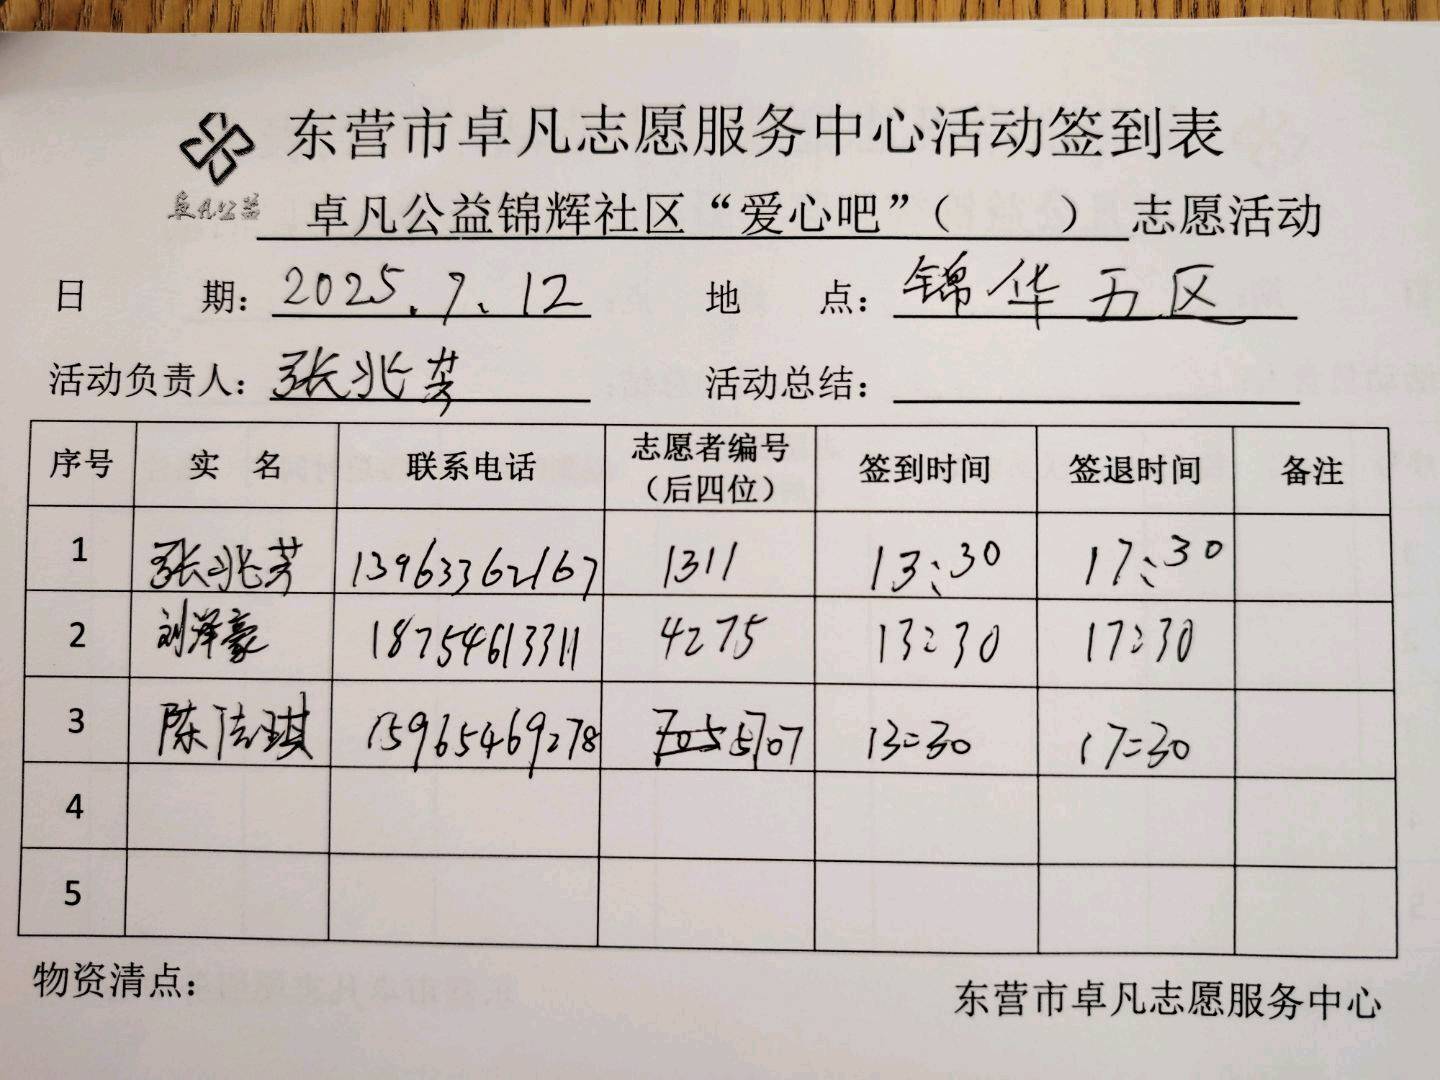 东营市卓凡志愿服务中心活动签到表
卓凡公益
卓凡公益锦辉社区“爱心吧”（ ）志愿活动
日 期：2025.7.12 地 点：锦华五区
活动负责人：张兆芳 活动总结：
序号 实 名 联系电话 志愿者编号（后四位） 签到时间 签退时间 备注
1 张兆芳 13963362167 1311 13:30 17:30
2 刘泽豪 18754613311 4275 13:30 17:30
3 陈法琪 15965469278 5707 13:30 17:30
4
5
物资清点：
东营市卓凡志愿服务中心